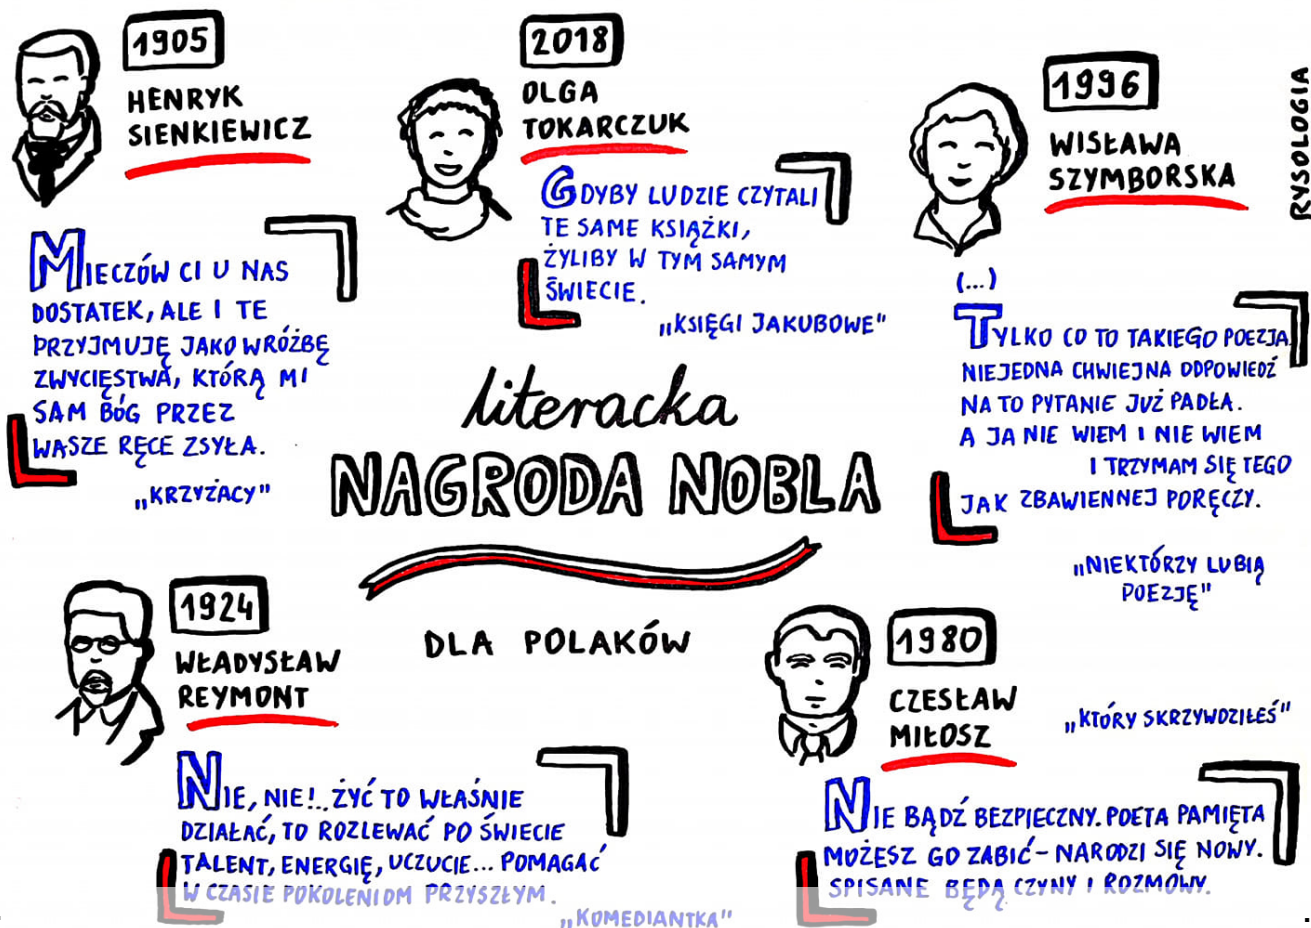 1905
HENRYK
SIENKIEWICZ
MIECZÓW CI U NAS
DOSTATEK, ALE I TE
PRZYJMUJĘ JAKO WRÓŻBĘ
ZWYCIĘSTWA, KTÓRĄ MI
SAM BÓG PRZEZ
WASZE RĘCE ZSYŁA.
„KRZYŻACY"
2018
OLGA
TOKARCZUK
GDYBY LUDZIE CZYTALI
TE SAME KSIĄŻKI,
ŻYLIBY W TYM SAMYM
ŚWIECIE.
„KSIĘGI JAKUBOWE"
1996
WISŁAWA
SZYMBORSKA
(...)
TYLKO CO TO TAKIEGO POEZJA
NIEJEDNA CHWIEJNA ODPOWIEDŹ
NA TO PYTANIE JUŻ PADŁA.
A JA NIE WIEM I NIE WIEM
I TRZYMAM SIĘ TEGO
JAK ZBAWIENNEJ PORĘCZY.
„NIEKTÓRZY LUBIĄ
POEZJĘ"
RYSOLOGIA
literacka
NAGRODA NOBLA
DLA POLAKÓW
1924
WŁADYSŁAW
REYMONT
NIE, NIE!.. ŻYĆ TO WŁAŚNIE
DZIAŁAĆ, TO ROZLEWAĆ PO ŚWIECIE
TALENT, ENERGIĘ, UCZUCIE... POMAGAĆ
W CZASIE POKOLENIOM PRZYSZŁYM.
„KOMEDIANTKA"
1980
CZESŁAW
MIŁOSZ
„KTÓRY SKRZYWDZIŁEŚ"
NIE BĄDŹ BEZPIECZNY. POETA PAMIĘTA
MOŻESZ GO ZABIĆ – NARODZI SIĘ NOWY.
SPISANE BĘDĄ CZYNY I ROZMOWY.